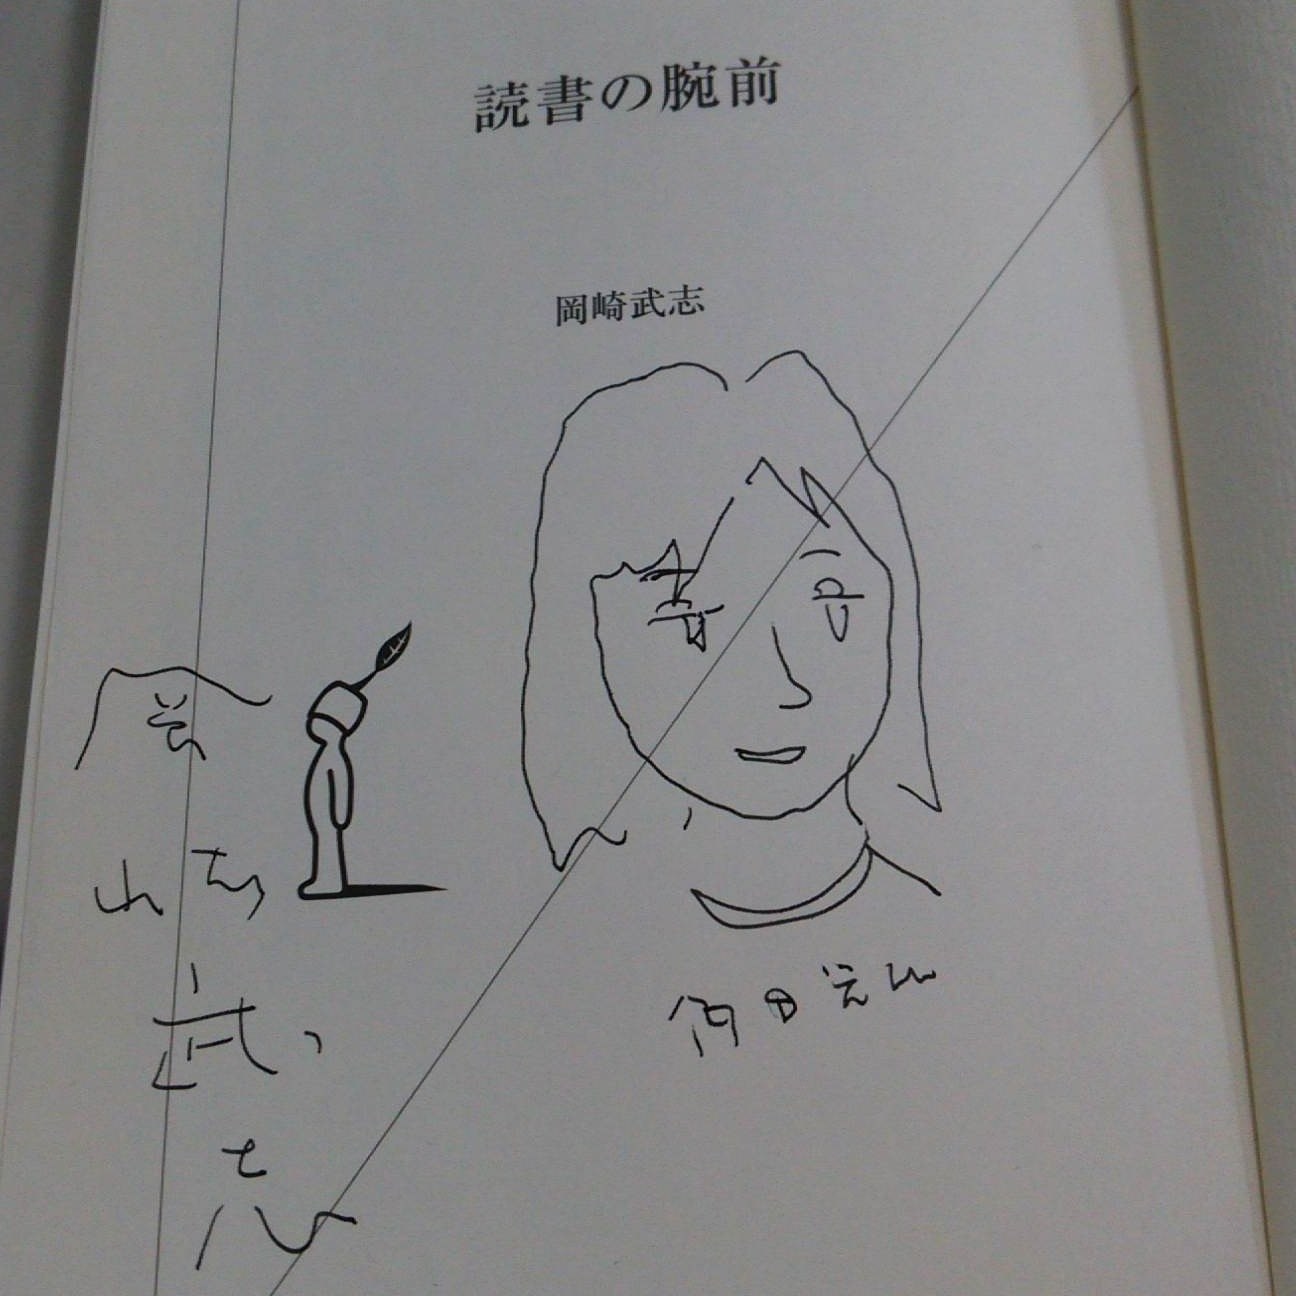 読書の腕前
岡崎武志
岡崎武志
角田光代